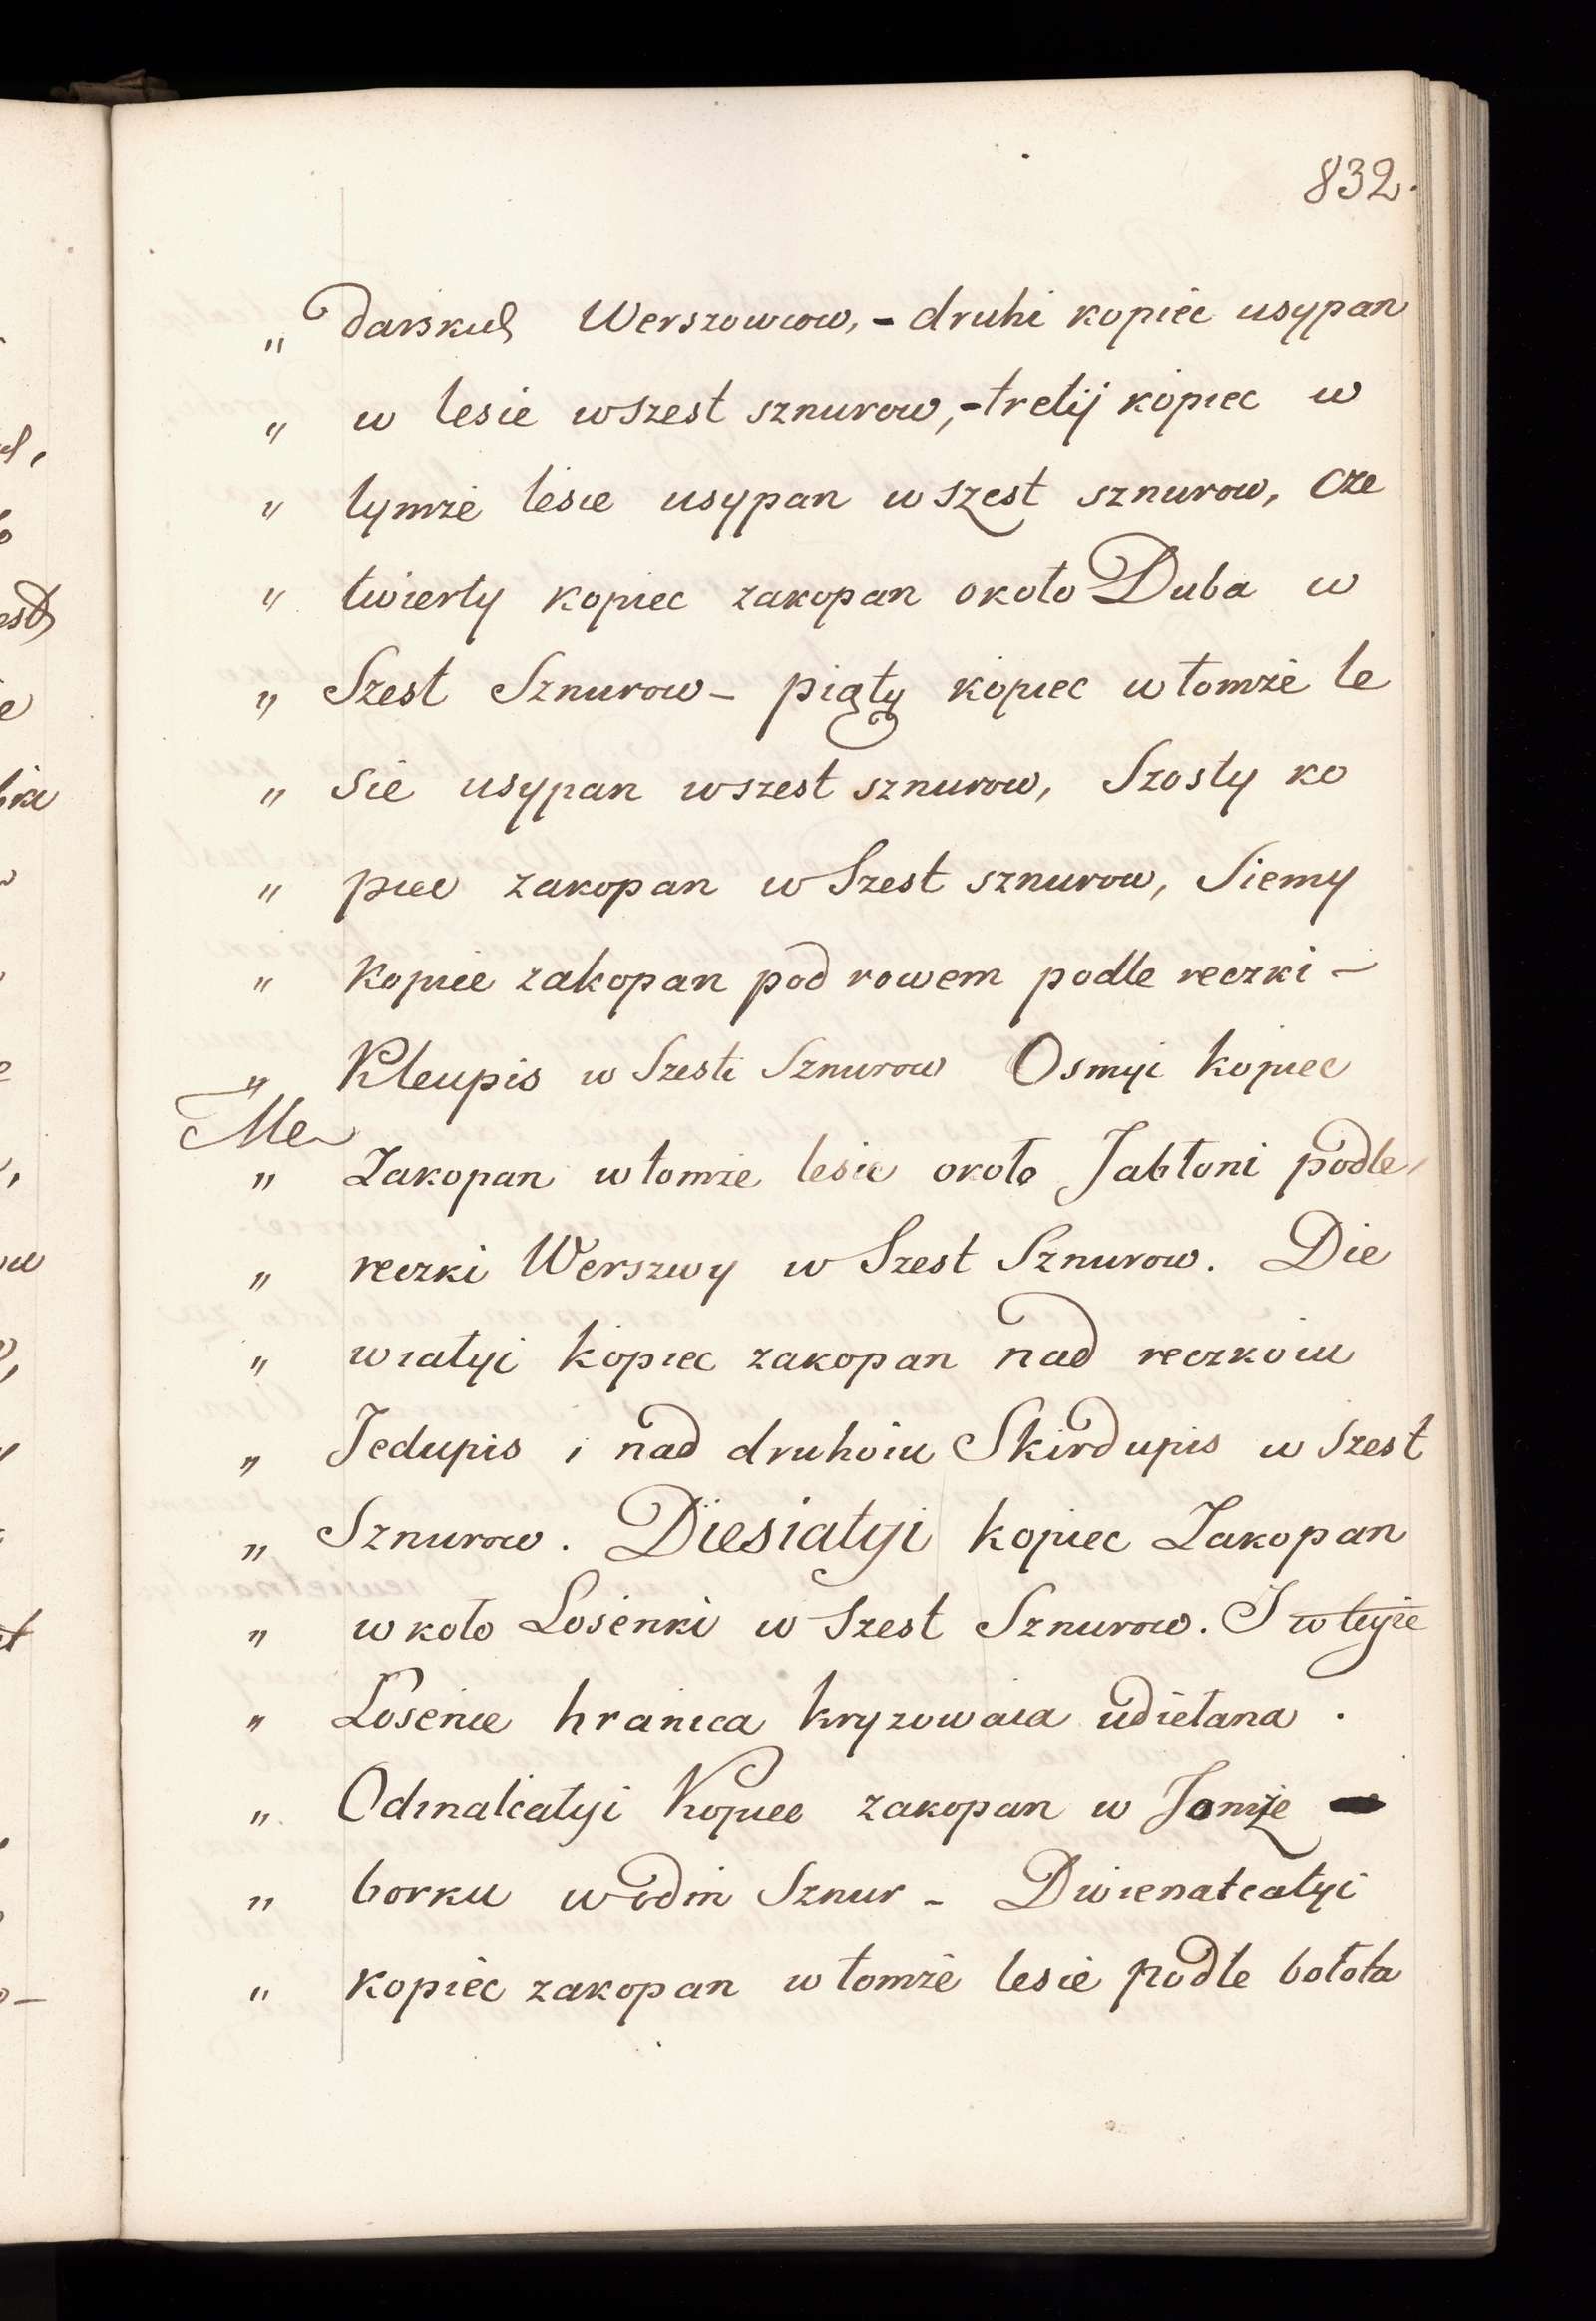 832.
„ darskich Werszowcow, - druhi kopiec usypan
„ w lesie w szest sznurow, - tretij kopiec w
„ tymże lesie usypan w szest sznurow, cze
„ twierty kopiec zakopan około Duba w
„ Szest Sznurow - piąty kopiec w tomże le
„ sie usypan w szest sznurow, Szosty ko
„ piec zakopan w Szest sznurow, Siemy
„ kopiec zakopan pod rowem podle reczki -
„ Kleupis w Szest Sznurow Osmyi kopiec
„ Zakopan w tomże lesie około Jabłoni podle
„ reczki Werszwy w Szest Sznurow. Die
„ wiatyi kopiec zakopan nad reczkoiu
„ Jedupis i nad druhoiu Skirdupis w Szest
„ Sznurow. Diesiatyi kopiec Zakopan
„ w koło Losenki w Szest Sznurow. I w teyże
„ Losenie hranica kryzowaia udiełana.
„ Odinatcatyi Kopiec zakopan w Tomże
„ borku w odin Sznur - Dwienatcatyi
„ kopiec zakopan w tomże lesie podle bołota